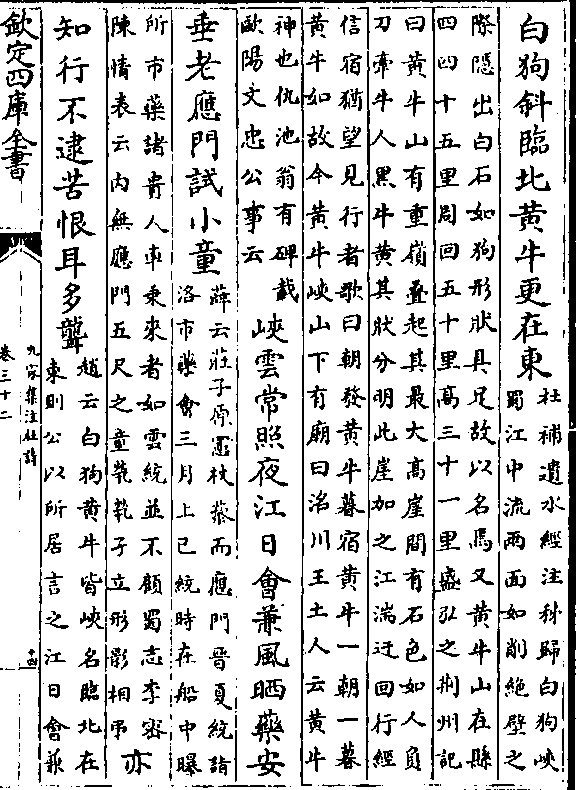 白狗斜臨北黄牛更在東
杜補遺水經注秭歸白狗峽
蜀江中流兩面如削絶壁之
際隠出白石如狗形狀具足故以名焉又黄牛山在縣
四四十五里周回五十里髙三十一里盛弘之荆州記
曰黄牛山有重嶺疊起其最大髙崖間有石色如人負
刀牽牛人黑牛黄其狀分明此崖加之江湍迂回行經
信宿猶望見行者歌曰朝發黄牛暮宿黄牛一朝一暮
黄牛如故今黄牛峽山下有廟曰洺川王土人云黄牛
神也仇池翁有碑載
歐陽文忠公事云
峽雲常照夜江日㑹兼風晒藥安
垂老應門試小童
薛云莊子原憲杖藜而應門晉夏統詣
洛市藥㑹三月上巳統時在船中曝
所市藥諸貴人車乗來者如雲統並不顧蜀志李宻
陳情表云内無應門五尺之童㷀㷀孑立形影相弔
亦
知行不逮苦恨耳多聾
趙云白狗黄牛皆峽名臨北在
東則公以所居言之江日㑹兼
欽定四庫全書
九家集注杜詩
卷三十二
十四